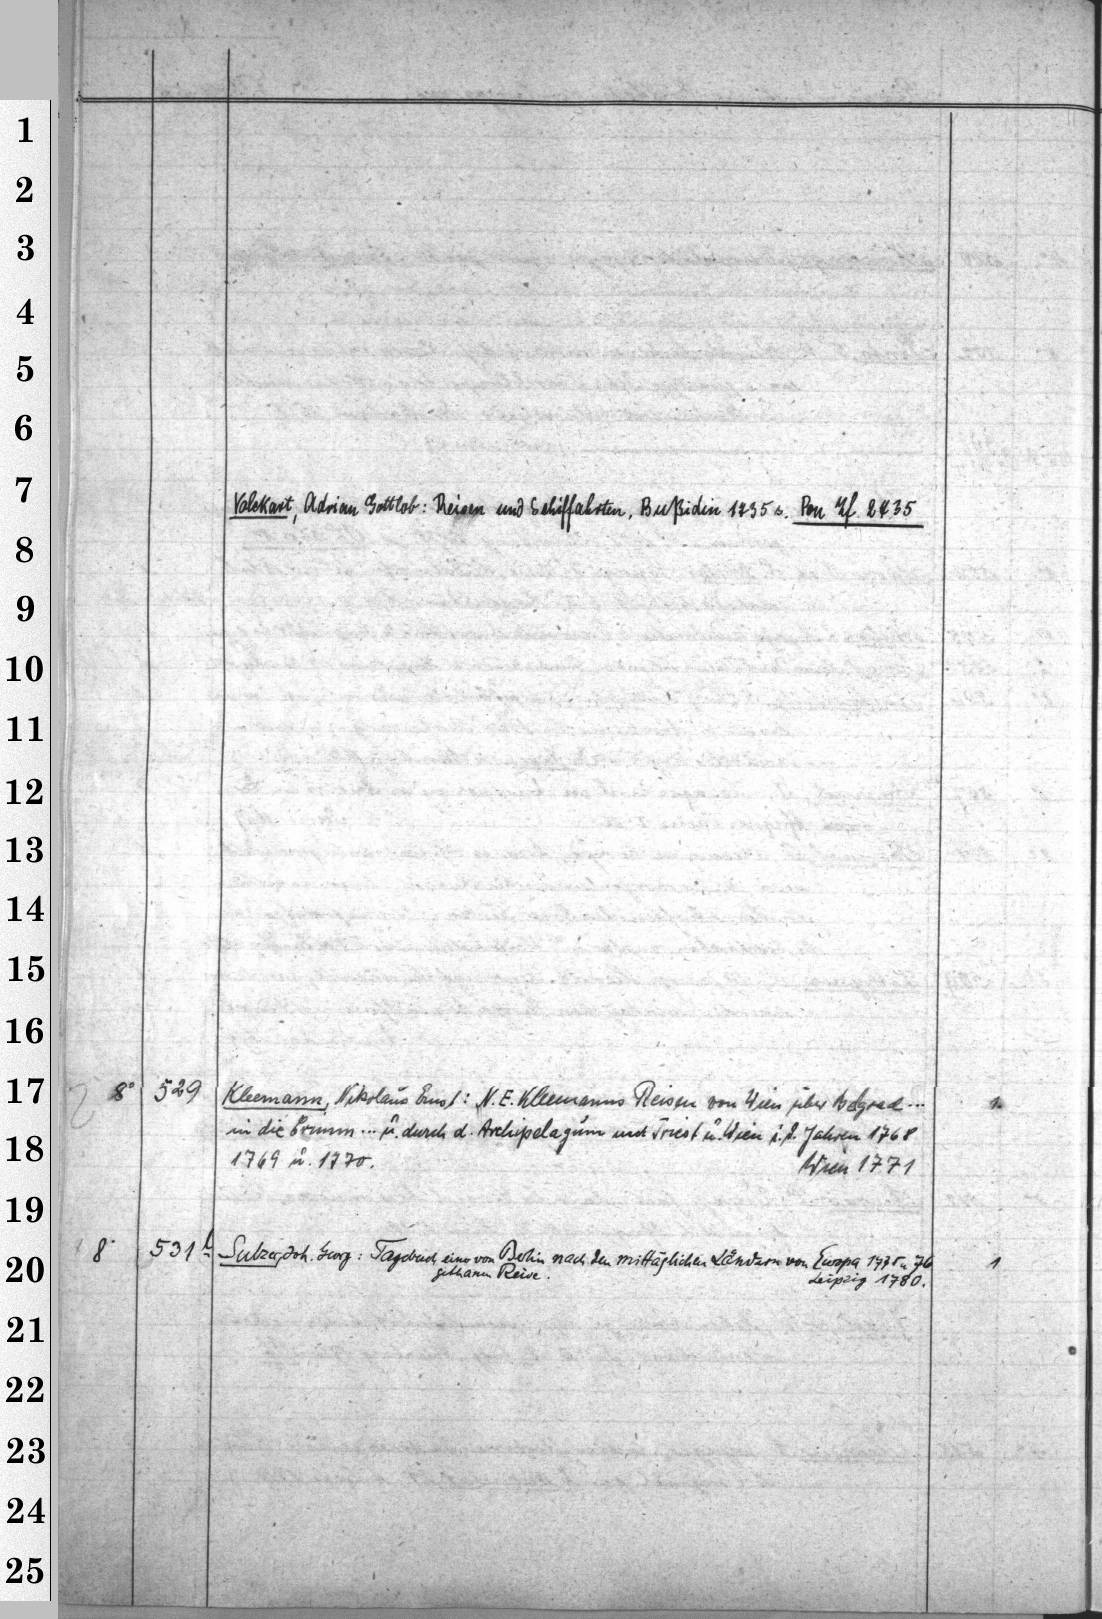 1
2
3
4
5
6
7
Volckart, Adrian Gottlob: Reisen und Schiffahrten, Bußidin 1735 s. Pon Yf 2435
8
9
10
11
12
13
14
15
16
17
8° 529 Kleemann, Nikolaus Ernst: N. E. Kleemanns Reisen von Wien über Belgrad... 1
in die Crimm ... ü. durch d. Archipelagum nach Triest ü. Wien i. d. Jahren 1768
18
1769 ü. 1770. Wien 1771
19
8° 531 b Sulzer, Joh. Georg: Tagebuch einer von Berlin nach den mittäglichen Ländern von Europa 1775 u 76 1
20
gethanen Reise. Leipzig 1780.
21
22
23
24
25